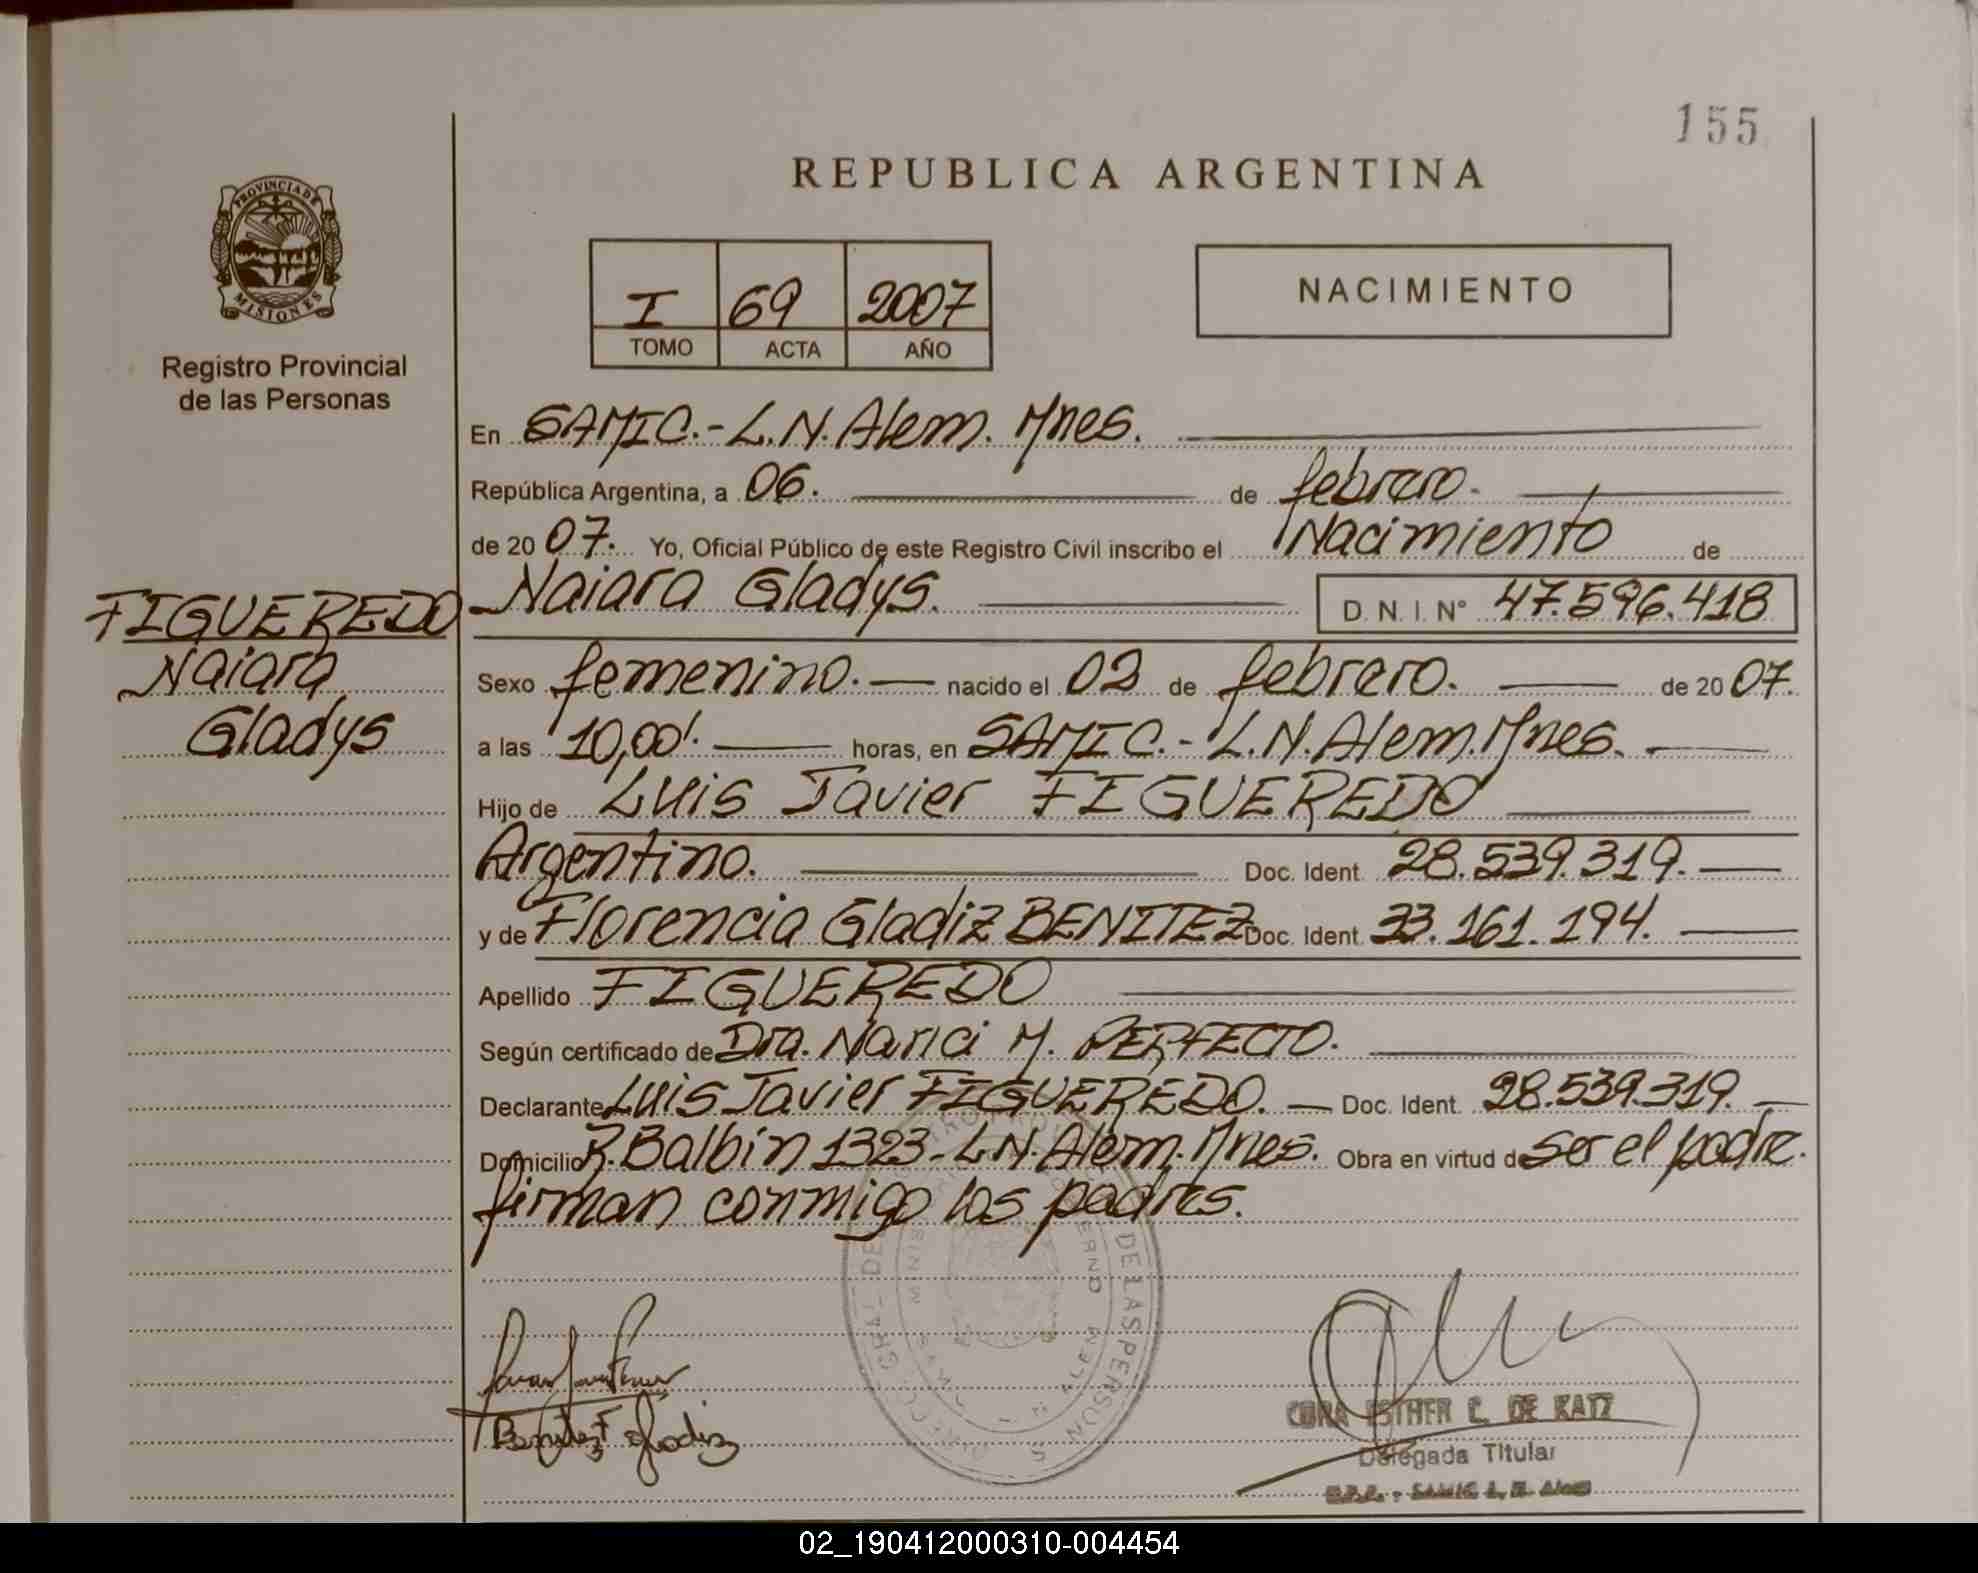 155
REPUBLICA ARGENTINA
PROVINCIA DE
MISIONES
Registro Provincial
de las Personas
I 69 2007
TOMO ACTA AÑO
NACIMIENTO
En SAMIC.- L.N. Alem. Mnes.
República Argentina, a 06. de febrero.
de 20 07. Yo, Oficial Público de este Registro Civil inscribo el Nacimiento de
Naiara Gladys. D. N. I. N° 47.596.418
FIGUEREDO
Naiara
Gladys
Sexo femenino. nacido el 02 de febrero. de 20 07.
a las 10,00'. horas, en SAMIC.- L.N. Alem. Mnes.
Hijo de Luis Javier FIGUEREDO
Argentino. Doc. Ident. 28.539.319.
y de Florencia Gladiz BENITEZ Doc. Ident. 33.161.194.
Apellido FIGUEREDO
Según certificado de Dra. Narici M. PERFECTO.
Declarante Luis Javier FIGUEREDO. Doc. Ident. 28.539.319.
Domicilio R. Balbin 1323- L.N. Alem. Mnes. Obra en virtud de ser el padre.
firman conmigo los padres.
Benitez F Gladiz
DE LAS PERSONAS
CORA ESTHER C. DE KATZ
Delegada Titular
02_190412000310-004454